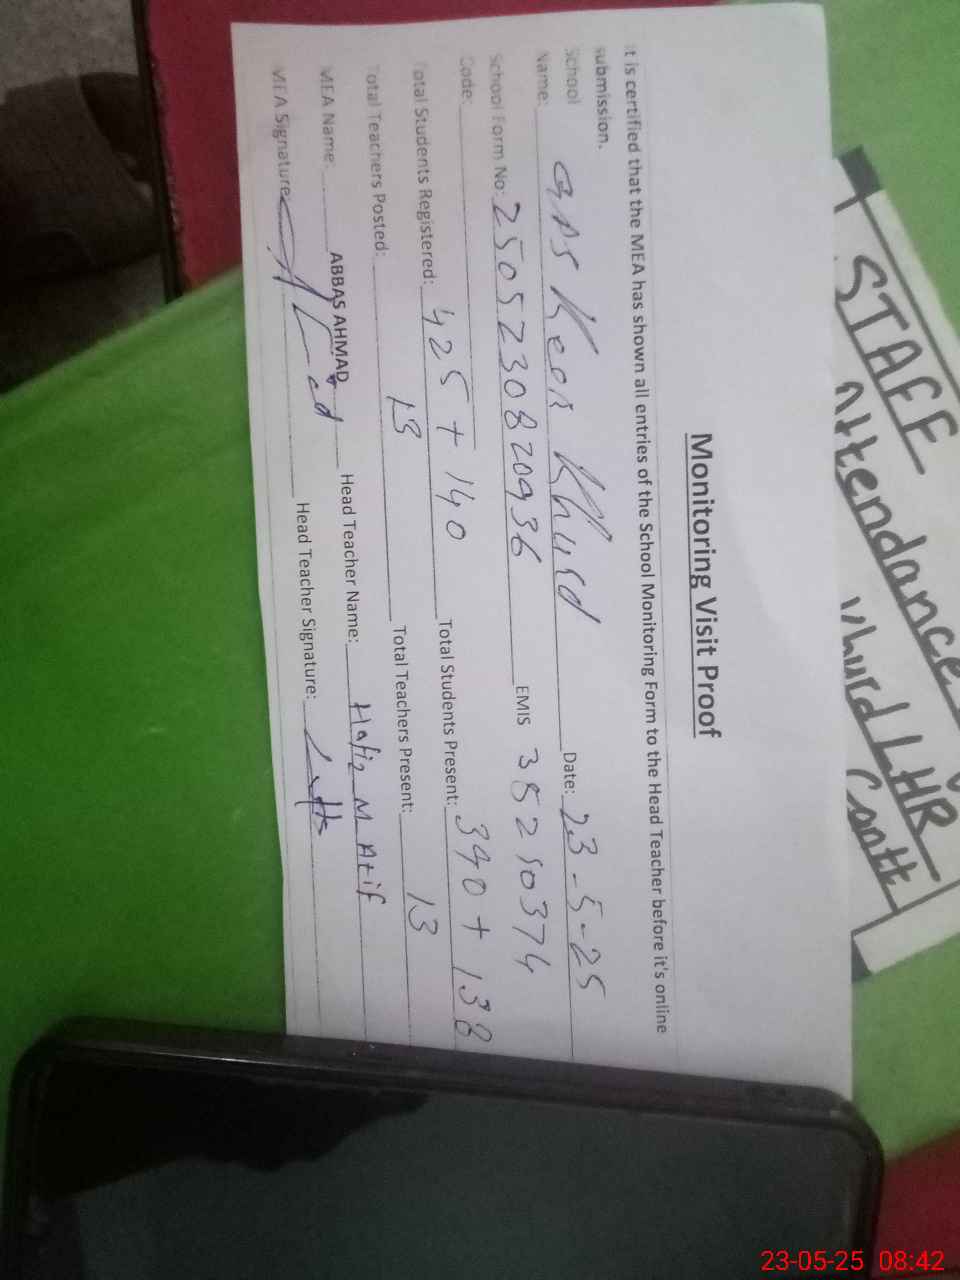 Monitoring Visit Proof
It is certified that the MEA has shown all entries of the School Monitoring Form to the Head Teacher before it's online
submission.
School
Name: GPS Keer Khurd Date: 23-5-25
School Form No: 2505230820936 EMIS 35250374
Code:
Total Students Registered: 425 + 140 Total Students Present: 390 + 138
Total Teachers Posted: 13 Total Teachers Present: 13
MEA Name: ABBAS AHMAD Head Teacher Name: Hafiz M Atif
MEA Signature Head Teacher Signature:
STAFF
Attendance
Khurd LHR
Cantt
23-05-25 08:42